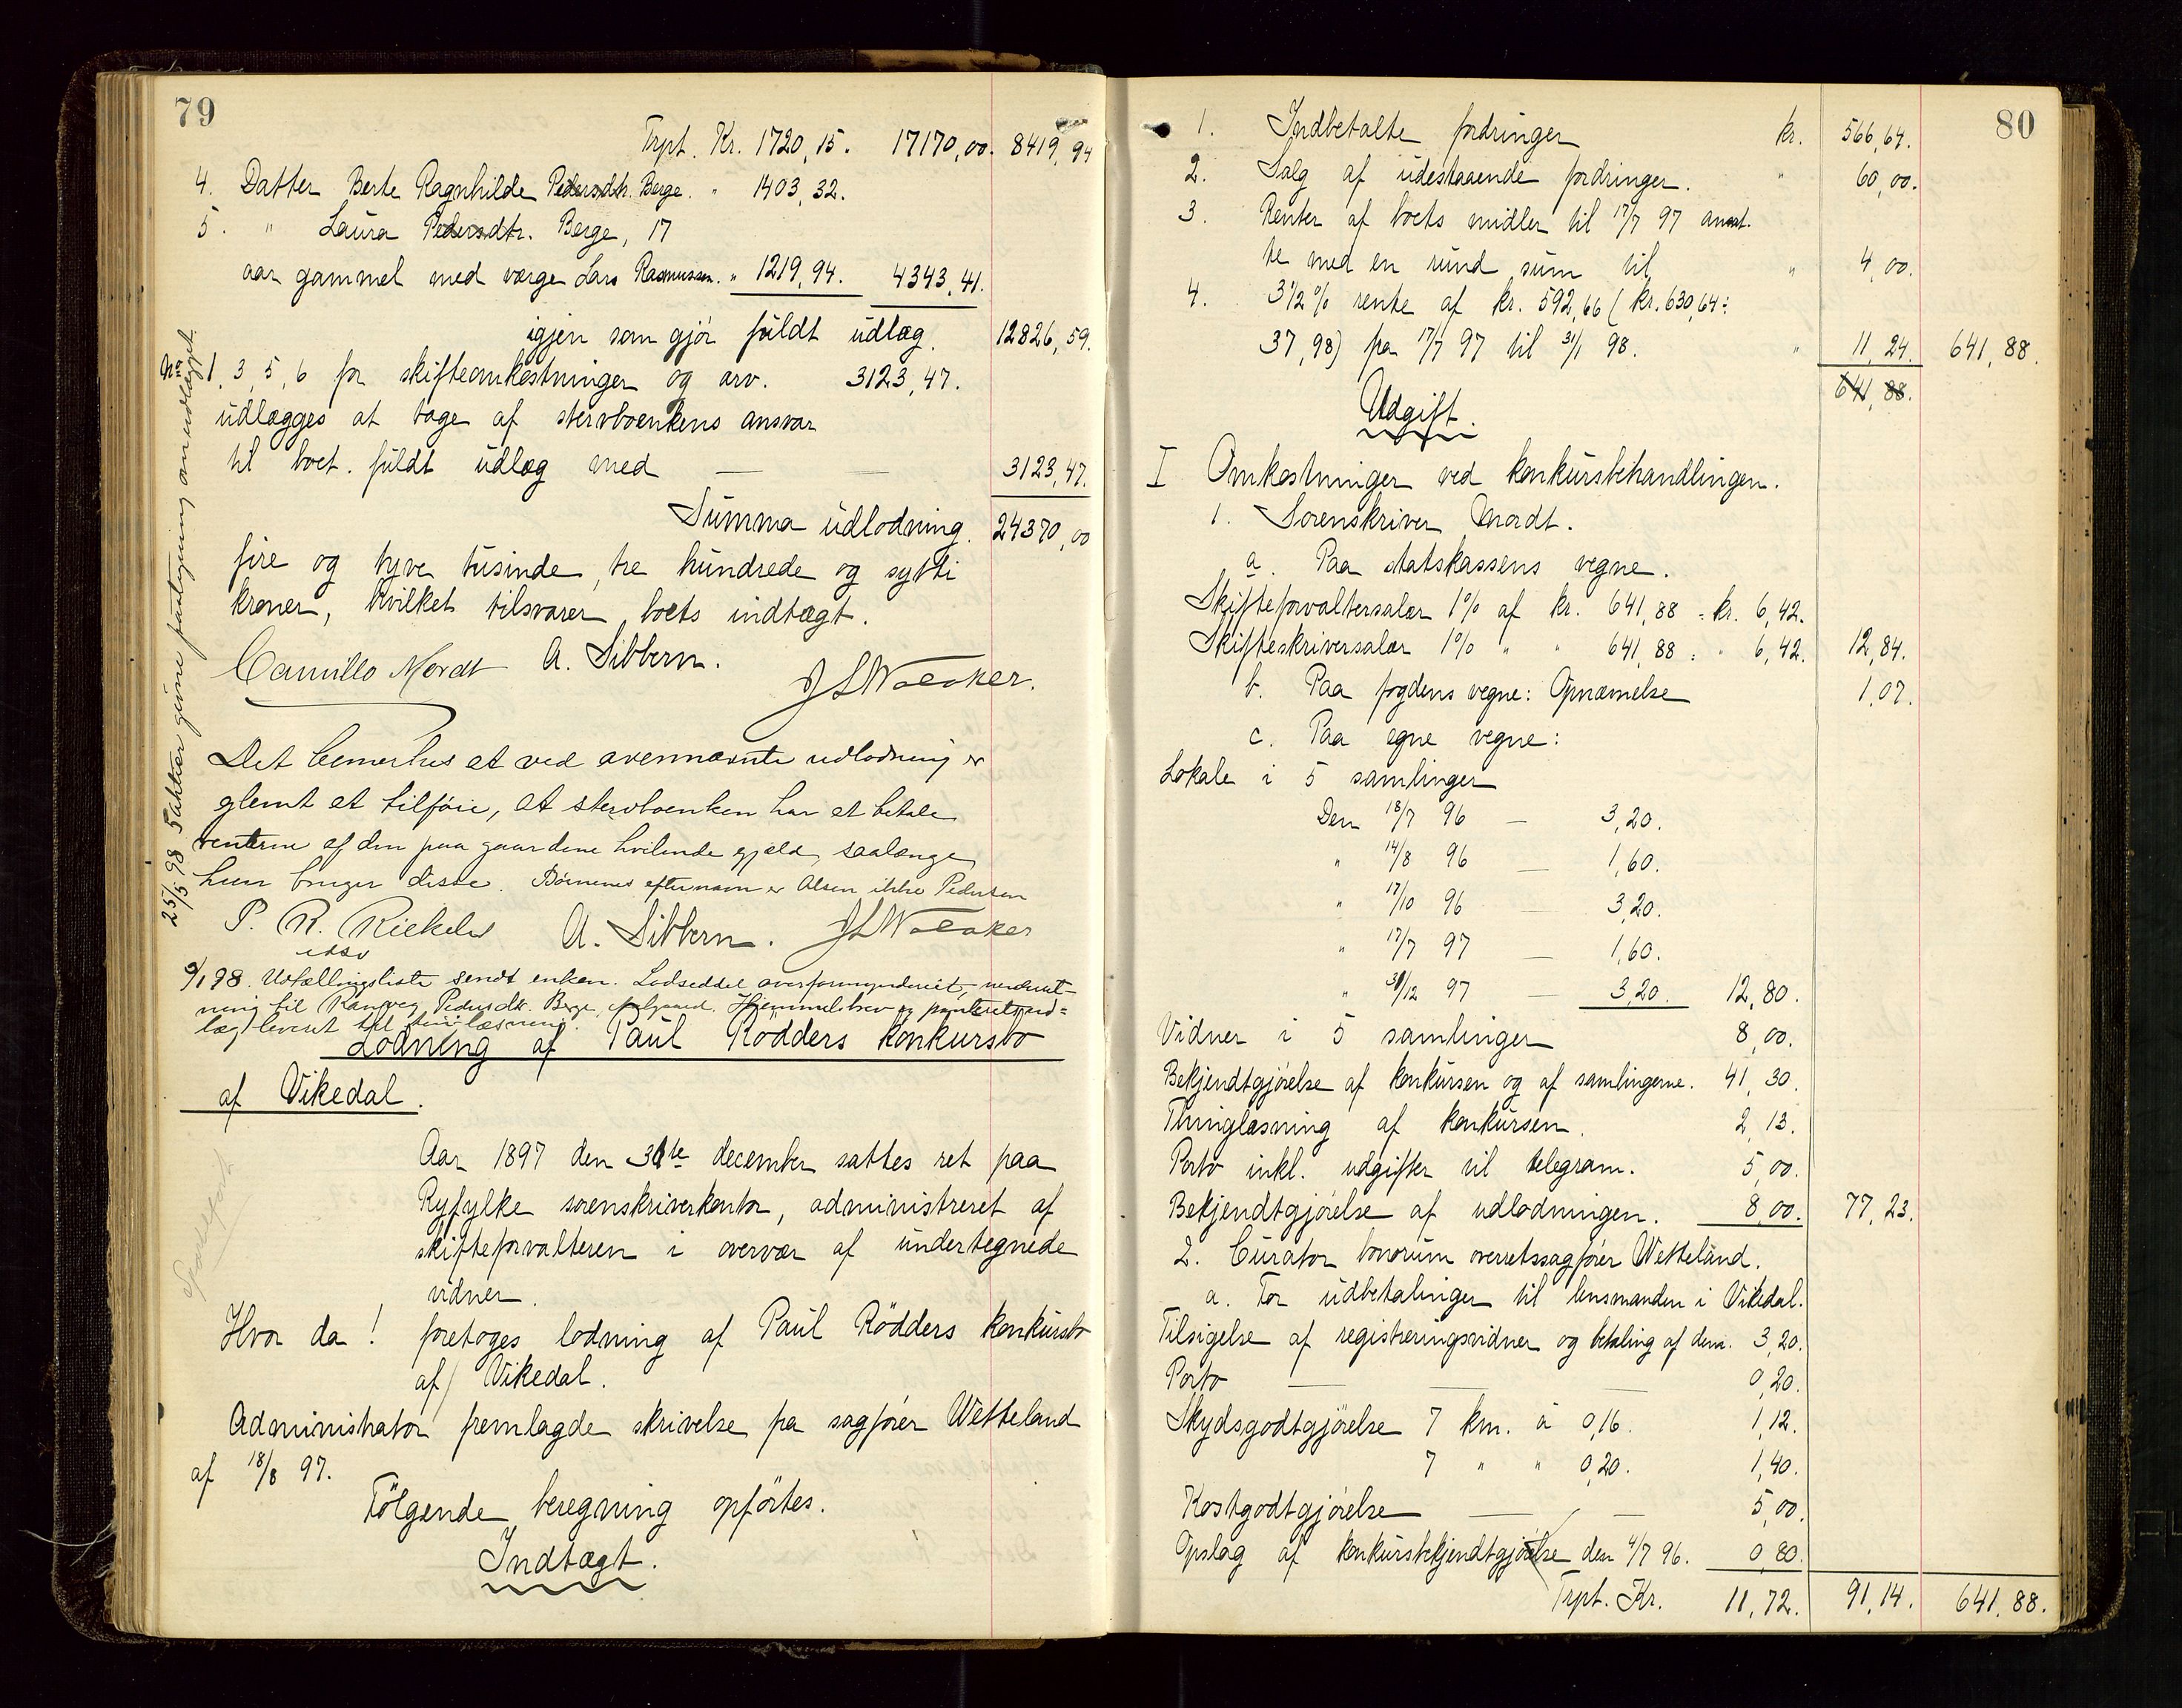 79
Trpt. Kr. 1720,15. 17170,00. 8419,94
4. Datter Berte Ragnhilde Pedersdtr. Berge. " 1403,32.
5. " Laura Pedersdtr. Berge, 17
aar gammel med værge Lars Rasmussen. " 1219,94. 4343,41.
igjen som gjør fuldt udlæg. 12826,59.
No 1, 3, 5, 6 for skifteomkostninger og arv. 3123,47.
udlægges at tage af stervboenkens ansvar
til boet. fuldt udlæg med — — 3123,47.
Summa udlodning. 24370,00
fire og tyve tusinde, tre hundrede og sytti
kroner, hvilket tilsvarer boets indtægt.
Camillo Mordt A. Sibbern.
Det bemerkes at ved ovennævnte udlodning er
glemt at tilføie, at stervboenken har at betale
renterne af den paa gaardene hvilende gjæld, saalænge
hun bruger disse. Børnenes efternavn er Olsen ikke Pedersen
A. Sibbern.
9/1 98. Udtællingsliste sendt enken. Lodseddel overformynderiet,
ning til Pedersdtr. Berge, Hjemmelsbrev og panteretsud=
læg leveret til thinglæsning.
Lodning af Paul Rödders konkursbo
af Vikedal.
Aar 1897 den 31te december sattes ret paa
Ryfylke sorenskriverkontor, administreret af
skifteforvalteren i overvær af undertegnede
vidner.
Hvor da! foretoges lodning af Paul Rödders konkursbo
af Vikedal.
Administrator fremlagde skrivelse fra sagfører Wetteland
af 18/8 97.
Følgende beregning opførtes.
Indtægt.
25/5 98 5 aktier givne paategning om udlægget.
80
1. Indbetalte fordringer kr. 566,64.
2. Salg af udestaaende fordringer. " 60,00.
3. Renter af boets midler til 17/7 97 ansat.
te med en rund sum til " 4,00.
4. 3 1/2 % rente af kr. 592,66 (kr. 630,64 ÷
37,98) fra 17/7 97 til 31/1 98. " 11,24. 641,88.
641,88.
Udgift.
I Omkostninger ved konkursbehandlingen.
1. Sorenskriver Mordt.
a. Paa statskassens vegne.
Skifteforvaltersalær 1% af kr. 641,88 = kr. 6,42.
Skifteskriversalær 1% " " 641,88 = " 6,42. 12,84.
b. Paa fogdens vegne: Opnævnelse 1,07.
c. Paa egne vegne:
Lokale i 5 samlinger
Den 18/7 96 — 3,20.
" 14/8 96 — 1,60.
" 17/10 96 — 3,20.
" 17/7 97 — 1,60.
" 31/12 97 — 3,20. 12,80.
Vidner i 5 samlinger 8,00.
Bekjendtgjørelse af konkursen og af samlingerne. 41,30.
Thinglæsning af konkursen. 2,13.
Porto inkl. udgifter til telegram. 5,00.
Bekjendtgjørelse af udlodningen. 8,00. 77,23.
2. Curator bonorum overretssagfører Wetteland.
a. For udbetalinger til lensmanden i Vikedal.
Tilsigelse af registreringsvidner og betaling af dem. 3,20.
Porto — — — 0,20.
Skydsgodtgjørelse 7 km. à 0,16. 1,12.
7 " " 0,20. 1,40.
Kostgodtgjørelse — — 5,00.
Opslag af konkursbekjendtgjørelse den 4/7 96. 0,80.
Trpt. Kr. 11,72. 91,14. 641,88.